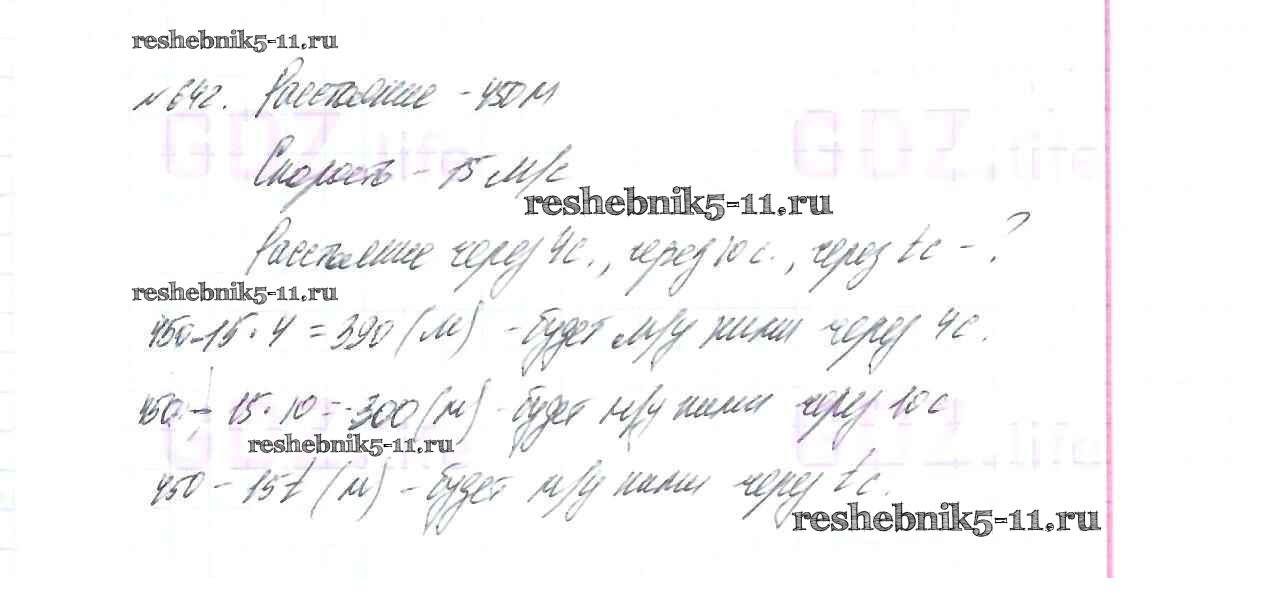 reshebnik5-11.ru
№642. Расстояние - 450 м
GDZ.life GDZ.life
Скорость - 15 м/с
reshebnik5-11.ru
Расстояние через 4 с., через 10 с., через t с - ?
reshebnik5-11.ru
450-15·4 = 390 (м) - будет м/у ними через 4 с.
450 - 15·10 = 300 (м) - будет м/у ними через 10 с
reshebnik5-11.ru
450 - 15t (м) - будет м/у ними через t с.
reshebnik5-11.ru